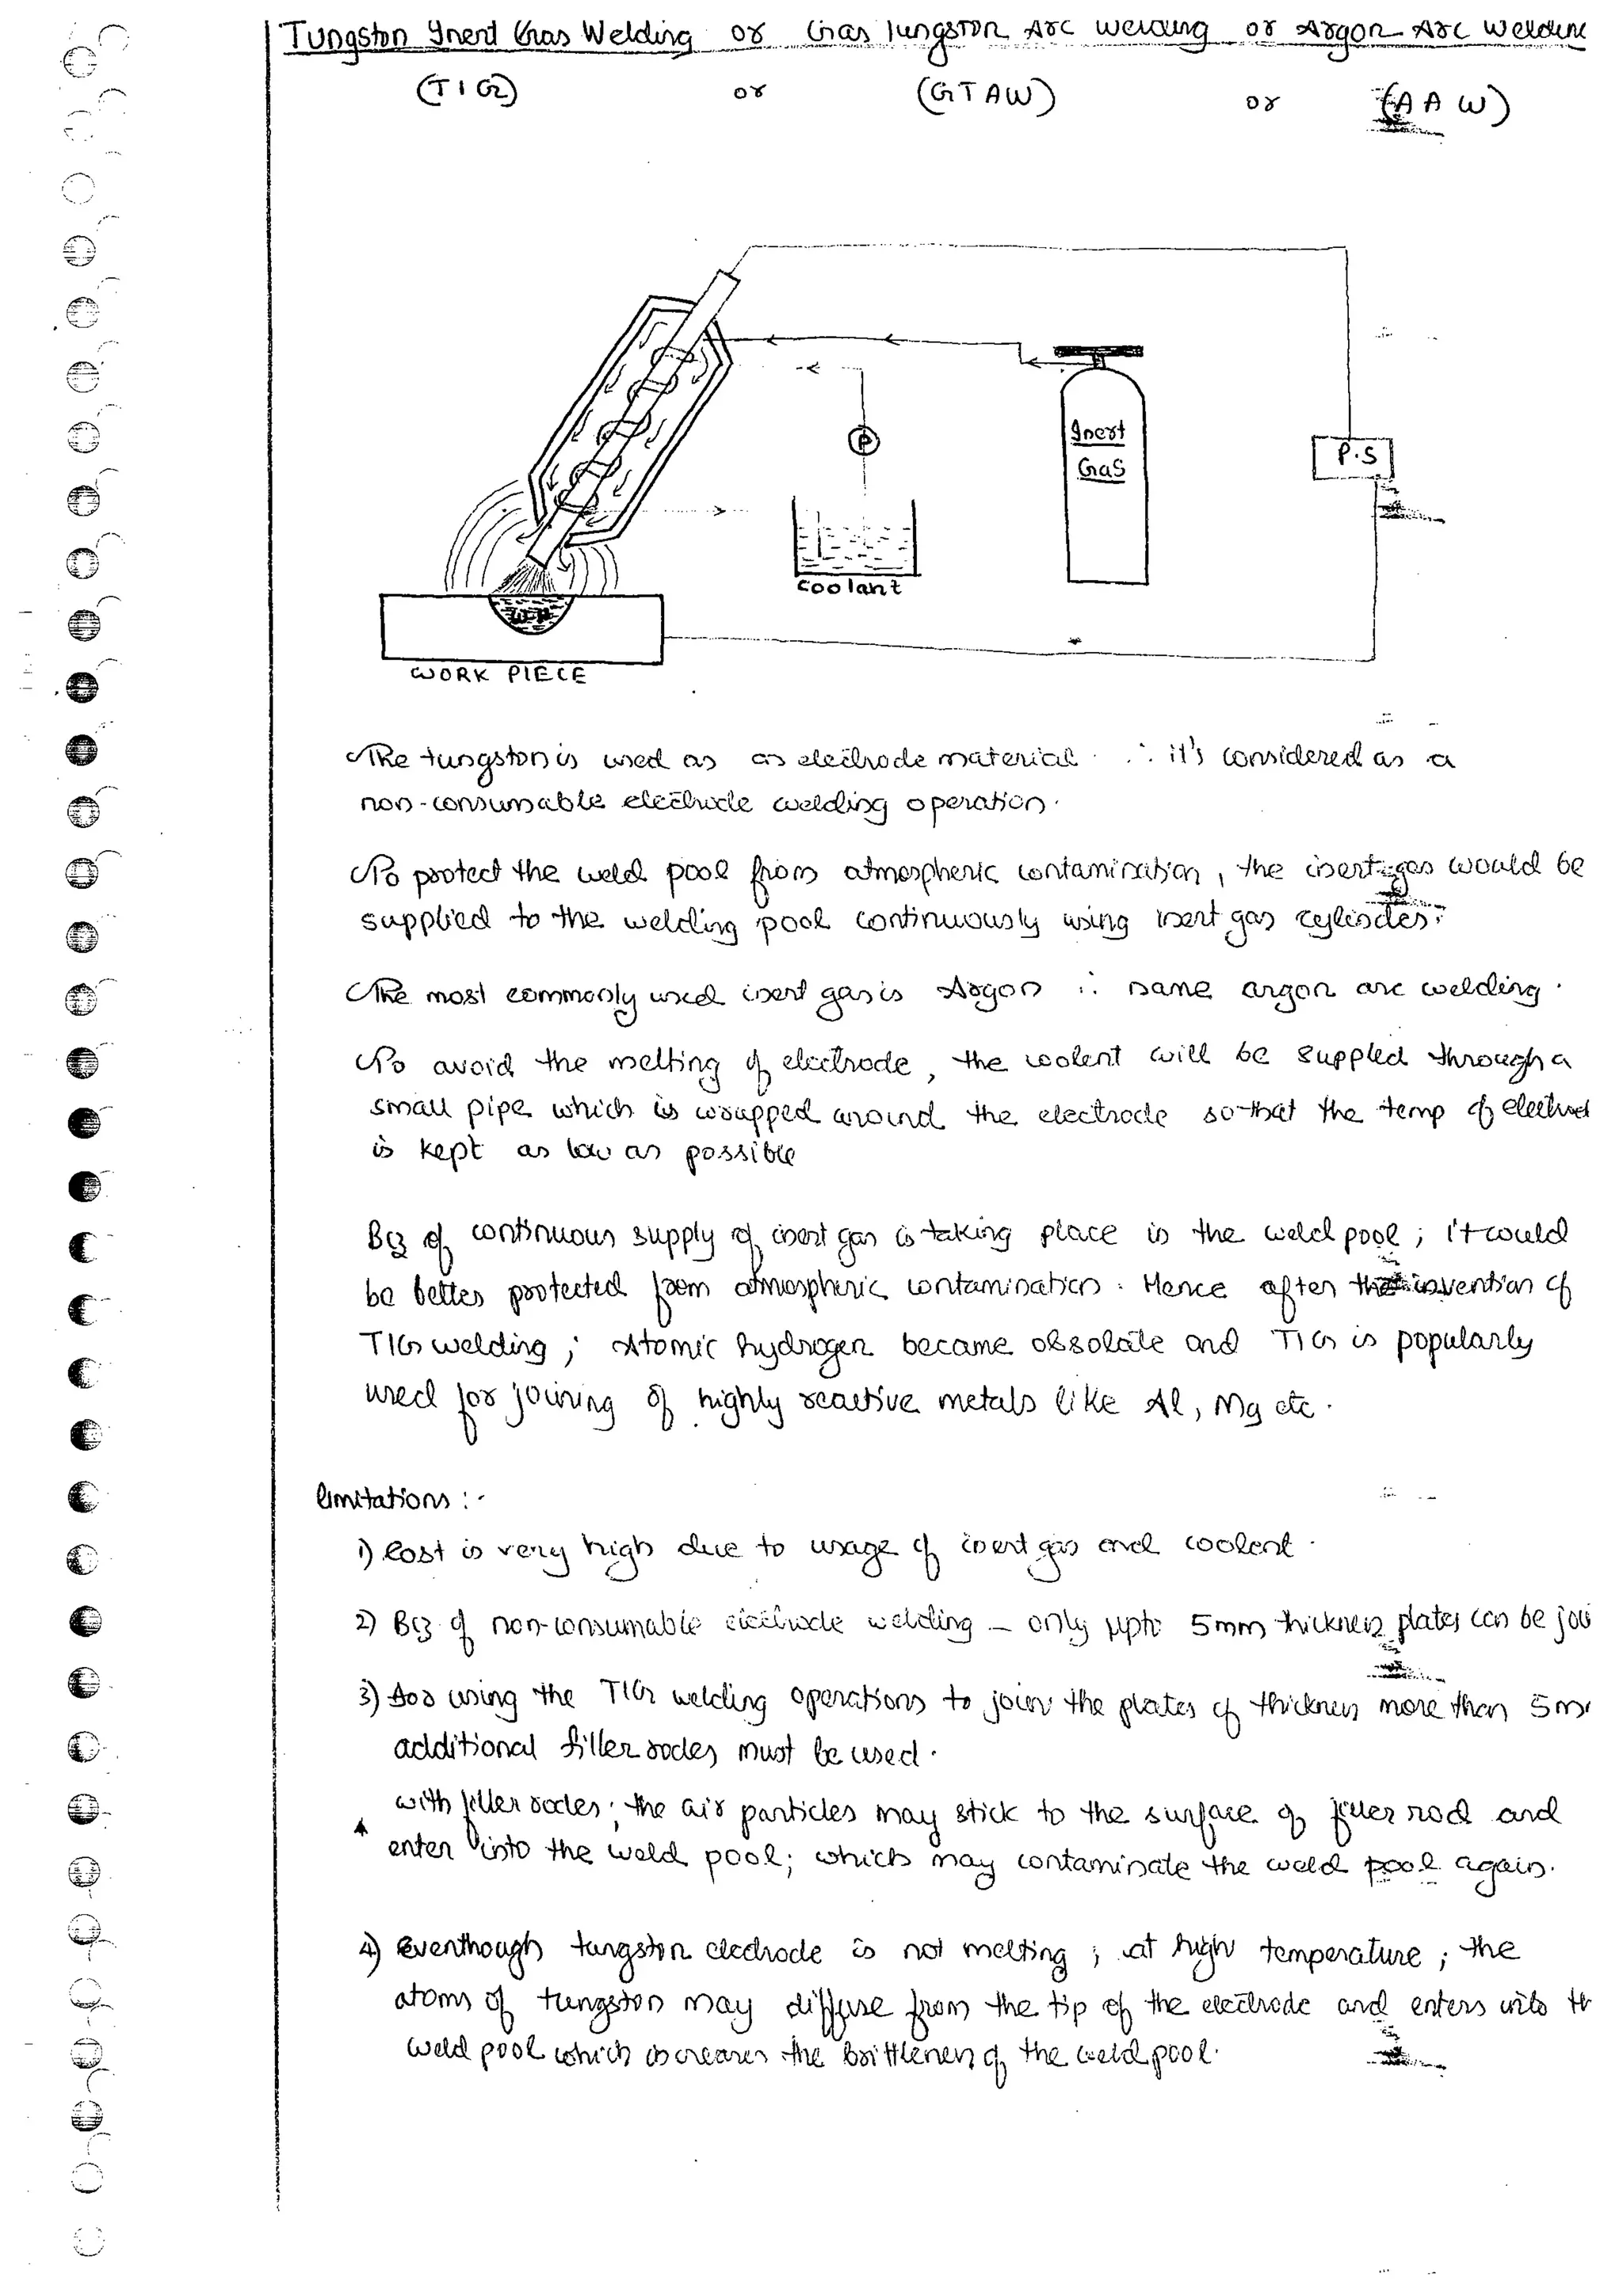 Tungston Inert Gas Welding or Gas Tungston Arc Welding or Argon Arc Welding
(TIG) or (GTAW) or (AAW)
Inert
Gas
P
P.S
coolant
W.P
WORK PIECE
The tungston is used as an electrode material. ∴ it's considered as a
non-consumable electrode welding operation.
To protect the weld pool from atmospheric contamination, the inert gas would be
supplied to the welding pool continuously using inert gas cylinder.
The most commonly used inert gas is Argon ∴ name argon arc welding.
To avoid the melting of electrode, the coolent will be suppled through a
small pipe which is wrapped around the electrode so that the temp of electrod
is kept as low as possible
Bcz of continuous supply of inert gas is taking place in the weld pool; it would
be better protected from atmospheric contamination. Hence after the invention of
TIG welding; Atomic hydrogen became obsolate and TIG is popularly
used for joining of highly reactive metals like Al, Mg etc.
limitations :-
1) Cost is very high due to usage of inert gas and coolent.
2) Bcz of non-consumable electrode welding - only upto 5mm thickness plates can be joi
3) For using the TIG welding operations to join the plates of thickness more than 5m
additional filler rodes must be used.
with filler rodes; the air particles may stick to the surface of filler rod and
enter into the weld pool; which may contaminate the weld pool again.
4) Eventhough tungston electrode is not melting; at high temperature; the
atoms of tungston may diffuse from the tip of the electrode and enters into th
weld pool which increases the brittleness of the weld pool.